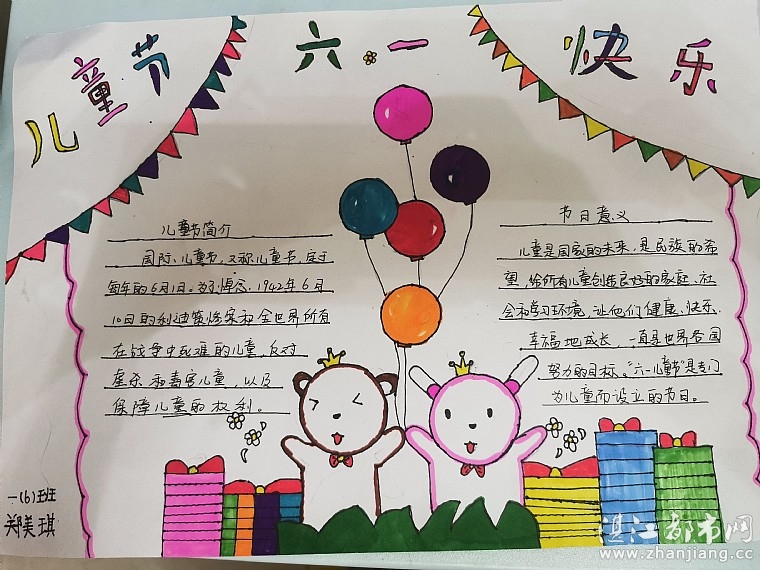 儿童节 六.一 快乐
儿童节简介
国际儿童节，又称儿童节，定于
每年的6月1日。为了悼念，1942年6月
10日的利迪策惨案和全世界所有
在战争中死难的儿童，反对
虐杀和毒害儿童，以及
保障儿童的权利。
节日意义
儿童是国家的未来，是民族的希
望，给所有儿童创造良好的家庭、社
会和学习环境，让他们健康、快乐、
幸福地成长，一直是世界各国
努力的目标。"六一儿童节"是专门
为儿童而设立的节日。
一(6)班
郑美琪
湛江都市网
www.zhanjiang.cc